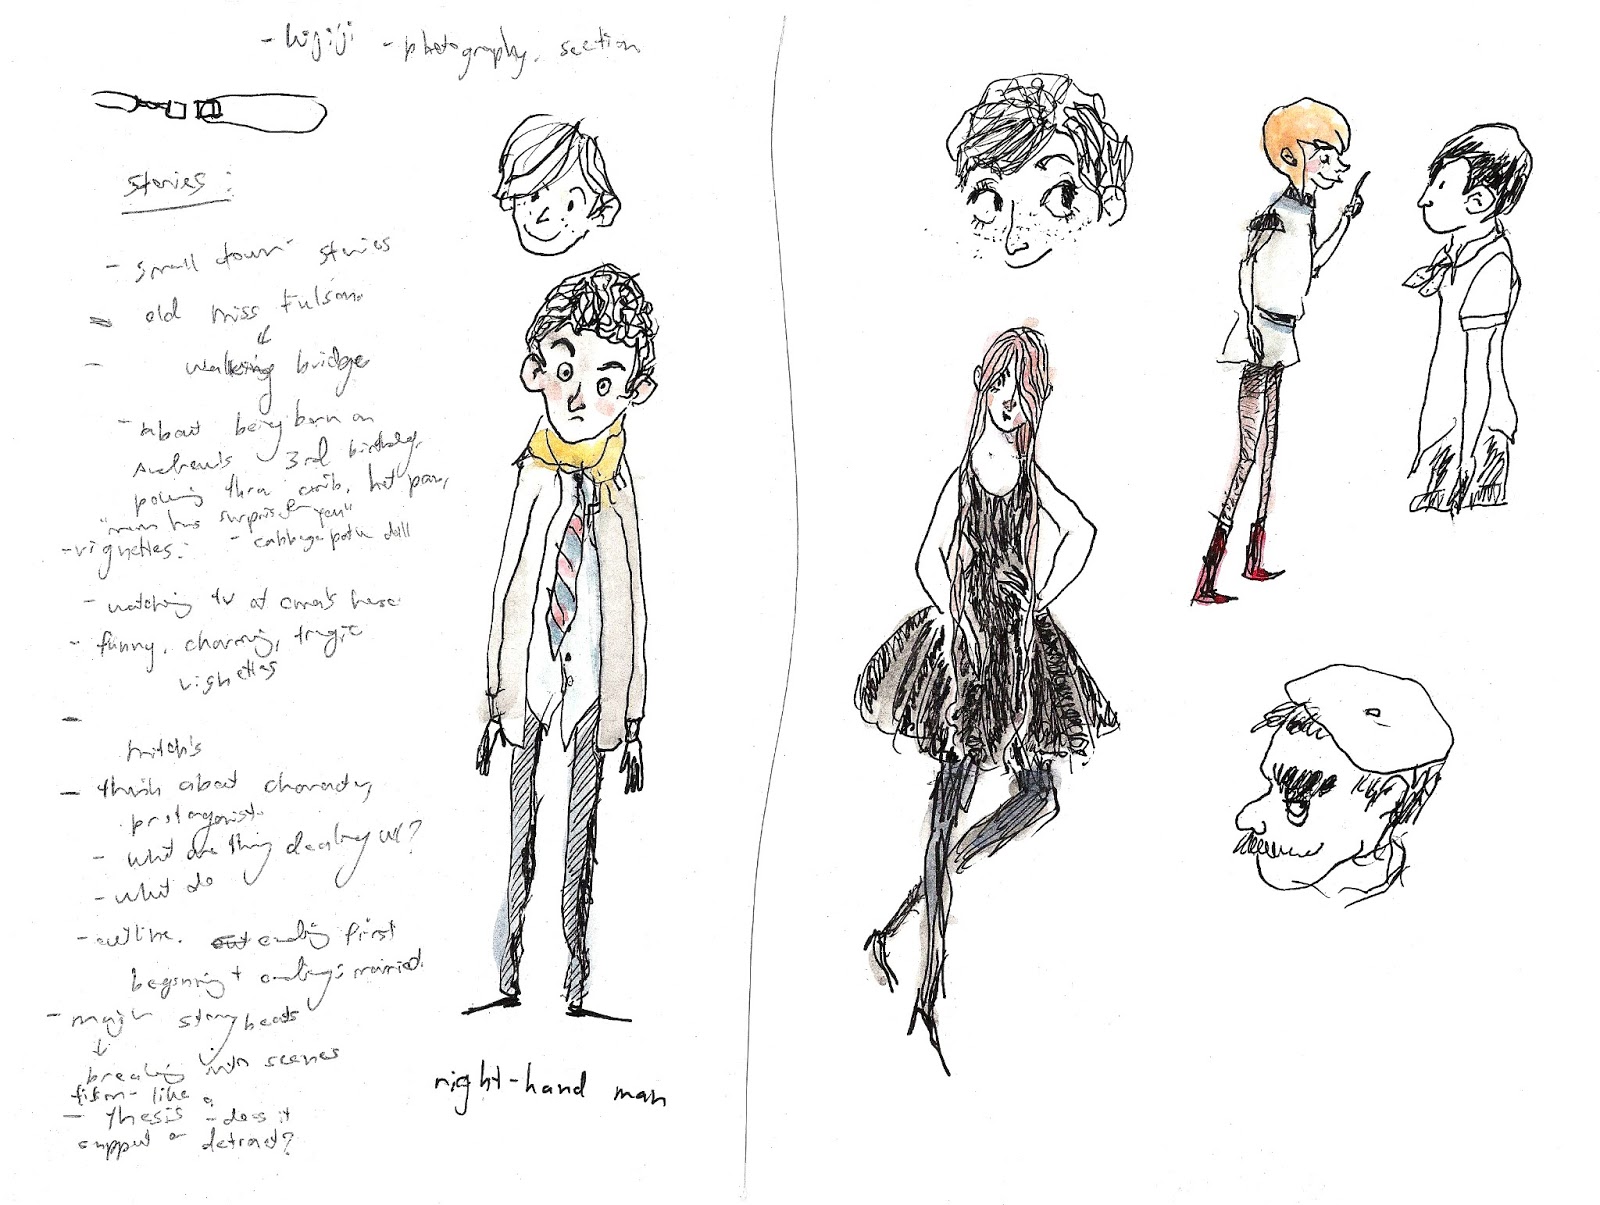 - kijiji - photography section
stories:
- small town stories
- old miss Fulsom
- walking bridge
- about being born on
Andrew's 3rd birthday,
poking thru crib, hot pan,
"mom has surprise for you"
- vignettes: - cabbage patch doll
- watching tv at oma's house
- funny, charming, tragic
vignettes
-
mitch's
- think about character,
protagonist.
- what are they dealing w/?
- what do
- outline. ending first
beginning + ending: married.
- major story beats
↓
breaking into scenes
film-like
- thesis - does it
support or detract?
right-hand man